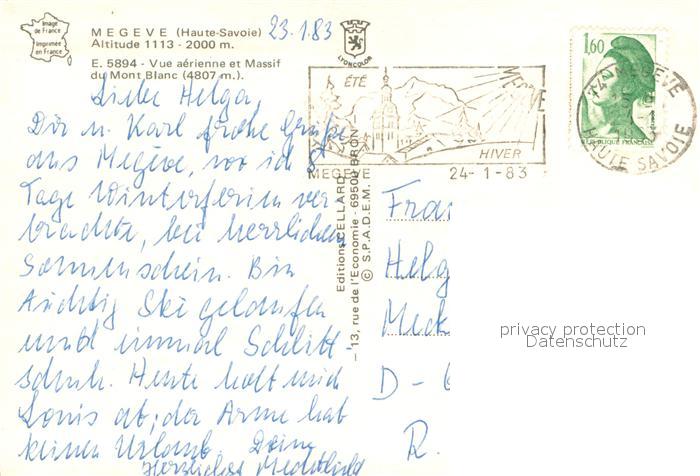 Image
de France
Imprimée
en France
MEGEVE (Haute-Savoie)
Altitude 1113 - 2000 m.
E. 5894 - Vue aérienne et Massif
du Mont Blanc (4807 m.).
23.1.83
LYONCOLOR
Liebe Helga,
Dir u. Karl frohe Grüße
aus Megève, wo ich 8
Tage Winterferien ver-
brachte, bei herrlichem
Sonnenschein. Bin
tüchtig Ski gelaufen
und einmal Schlitt-
schuh. Heute holt mich
Louis ab; der Arme hat
keinen Urlaub. Deine
Mechthild
Editions CELLARD
- 13, rue de l'Economie - 69500 BRON
© S.P.A.D.E.M.
ÉTÉ
MEGEVE
HIVER
MEGEVE 24-1-83
1,60
REPUBLIQUE FRANÇAISE
74 MEGEVE
HAUTE SAVOIE
Frau
Helg
Meck
D - 6
R.
privacy protection
Datenschutz